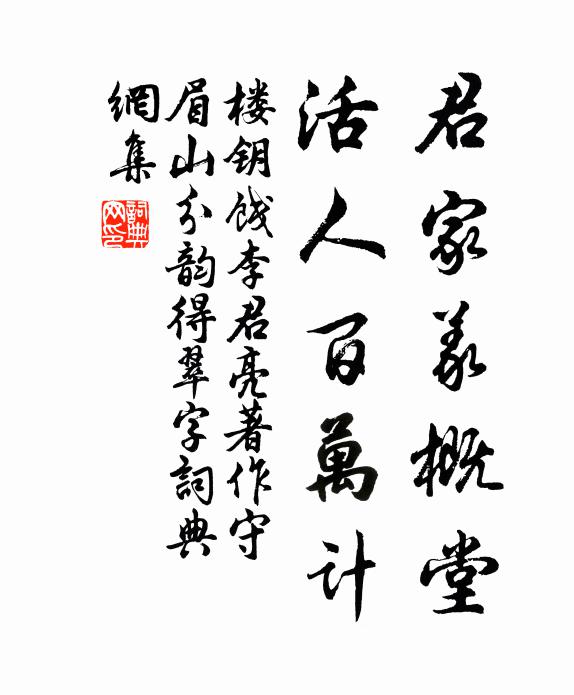 君家義概堂
活人百萬計
楼钥饯李君亮著作守
眉山分韵得翠字詞典
網集
詞典網印